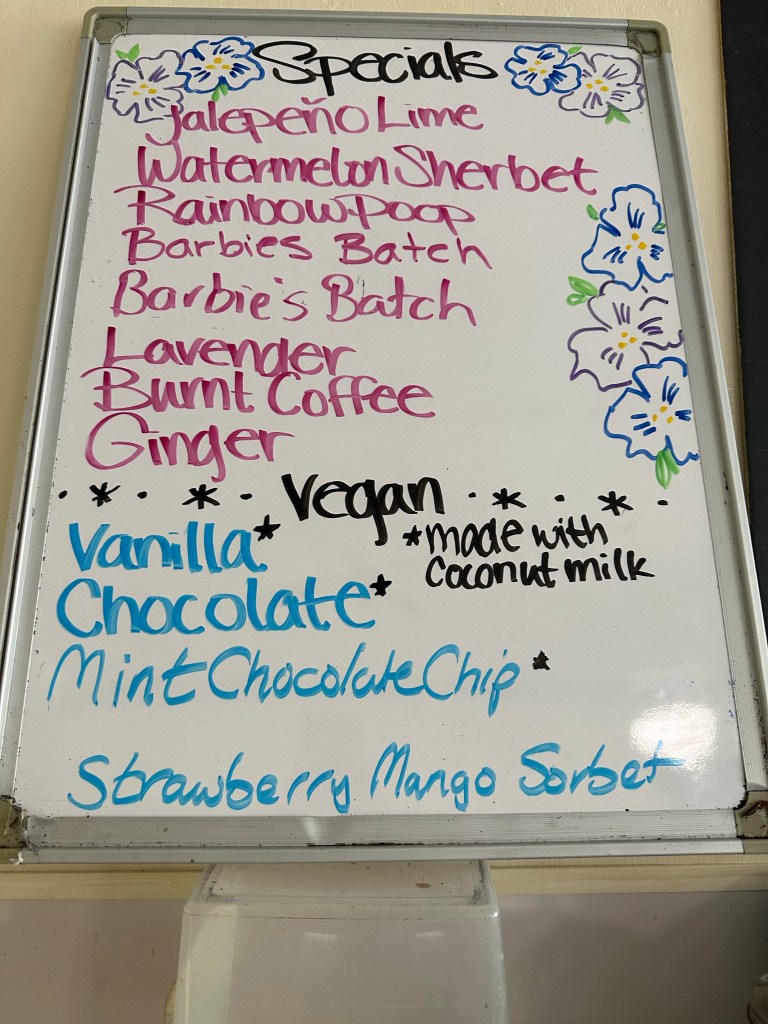 Specials
Jalepeño Lime
Watermelon Sherbet
Rainbow Poop
Barbies Batch
Barbie's Batch
Lavender
Burnt Coffee
Ginger
· * · * · Vegan · * · * ·
Vanilla*
*made with
coconut milk
Chocolate*
Mint Chocolate Chip *
Strawberry Mango Sorbet